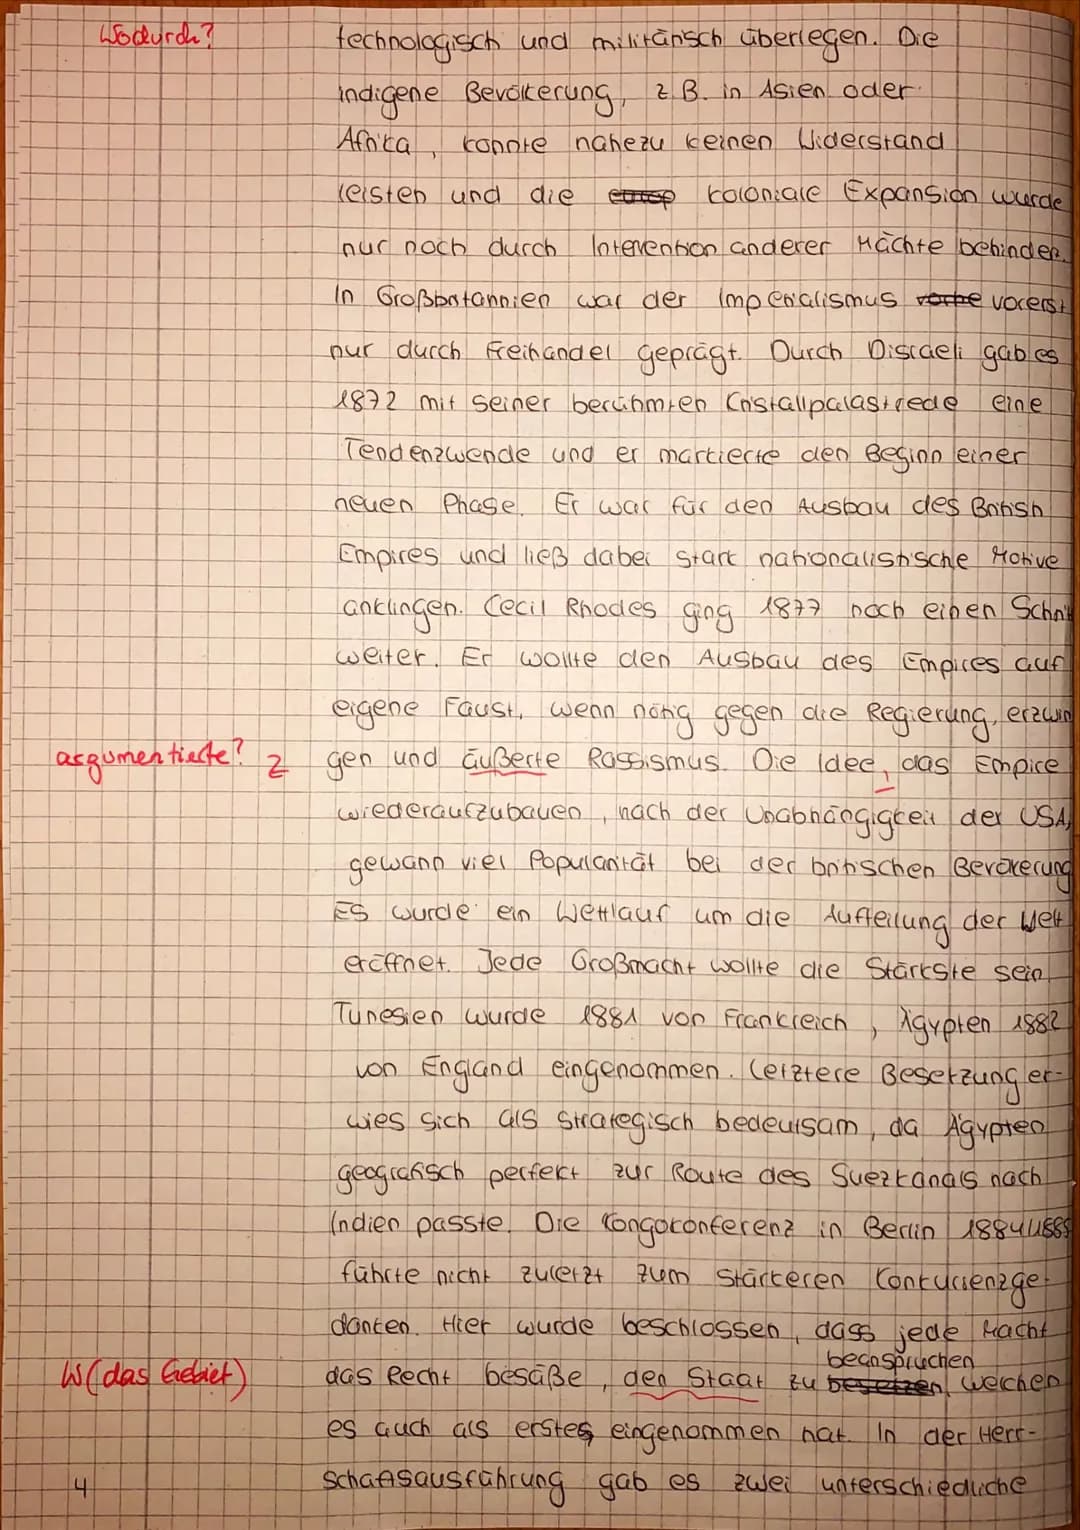 Wodurch?
technologisch und militärisch überlegen. Die
indigene Bevölkerung, z.B. in Asien oder
Afrika, konnte nahezu keinen Widerstand
leisten und die europ koloniale Expansion wurde
nur noch durch Intervention anderer Mächte behindert.
In Großbritannien war der Imperialismus vorhe vorerst
nur durch Freihandel geprägt. Durch Disraeli gab es
1872 mit seiner berühmten Cristallpalastrede eine
Tendenzwende und er markierte den Beginn einer
neuen Phase. Er war für den Ausbau des British
Empires und ließ dabei stark nationalistische Motive
anklingen. Cecil Rhodes ging 1877 noch einen Schritt
weiter. Er wollte den Ausbau des Empires auf
eigene Faust, wenn nötig gegen die Regierung, erzwin
argumentierte? Z
gen und äußerte Rassismus. Die Idee, das Empire
wiederaufzubauen, nach der Unabhängigkeit der USA,
gewann viel Popularität bei der britischen Bevölkerung
Es wurde ein Wettlauf um die Aufteilung der Welt
eröffnet. Jede Großmacht wollte die Stärkste sein
Tunesien wurde 1881 von Frankreich, Ägypten 1882
von England eingenommen. Letztere Besetzung er-
wies sich als strategisch bedeutsam, da Ägypten
geografisch perfekt zur Route des Suezkanals nach
Indien passte. Die Kongokonferenz in Berlin 1884/1885
führte nicht zuletzt zum stärkeren Konkurrenzge-
danken. Hier wurde beschlossen, dass jede Macht
beanspruchen
W (das Gebiet)
das Recht besäße, den Staat zu besetzen, welchen
es auch als erstes eingenommen hat. In der Herr-
4
schaftsausführung gab es zwei unterschiedliche